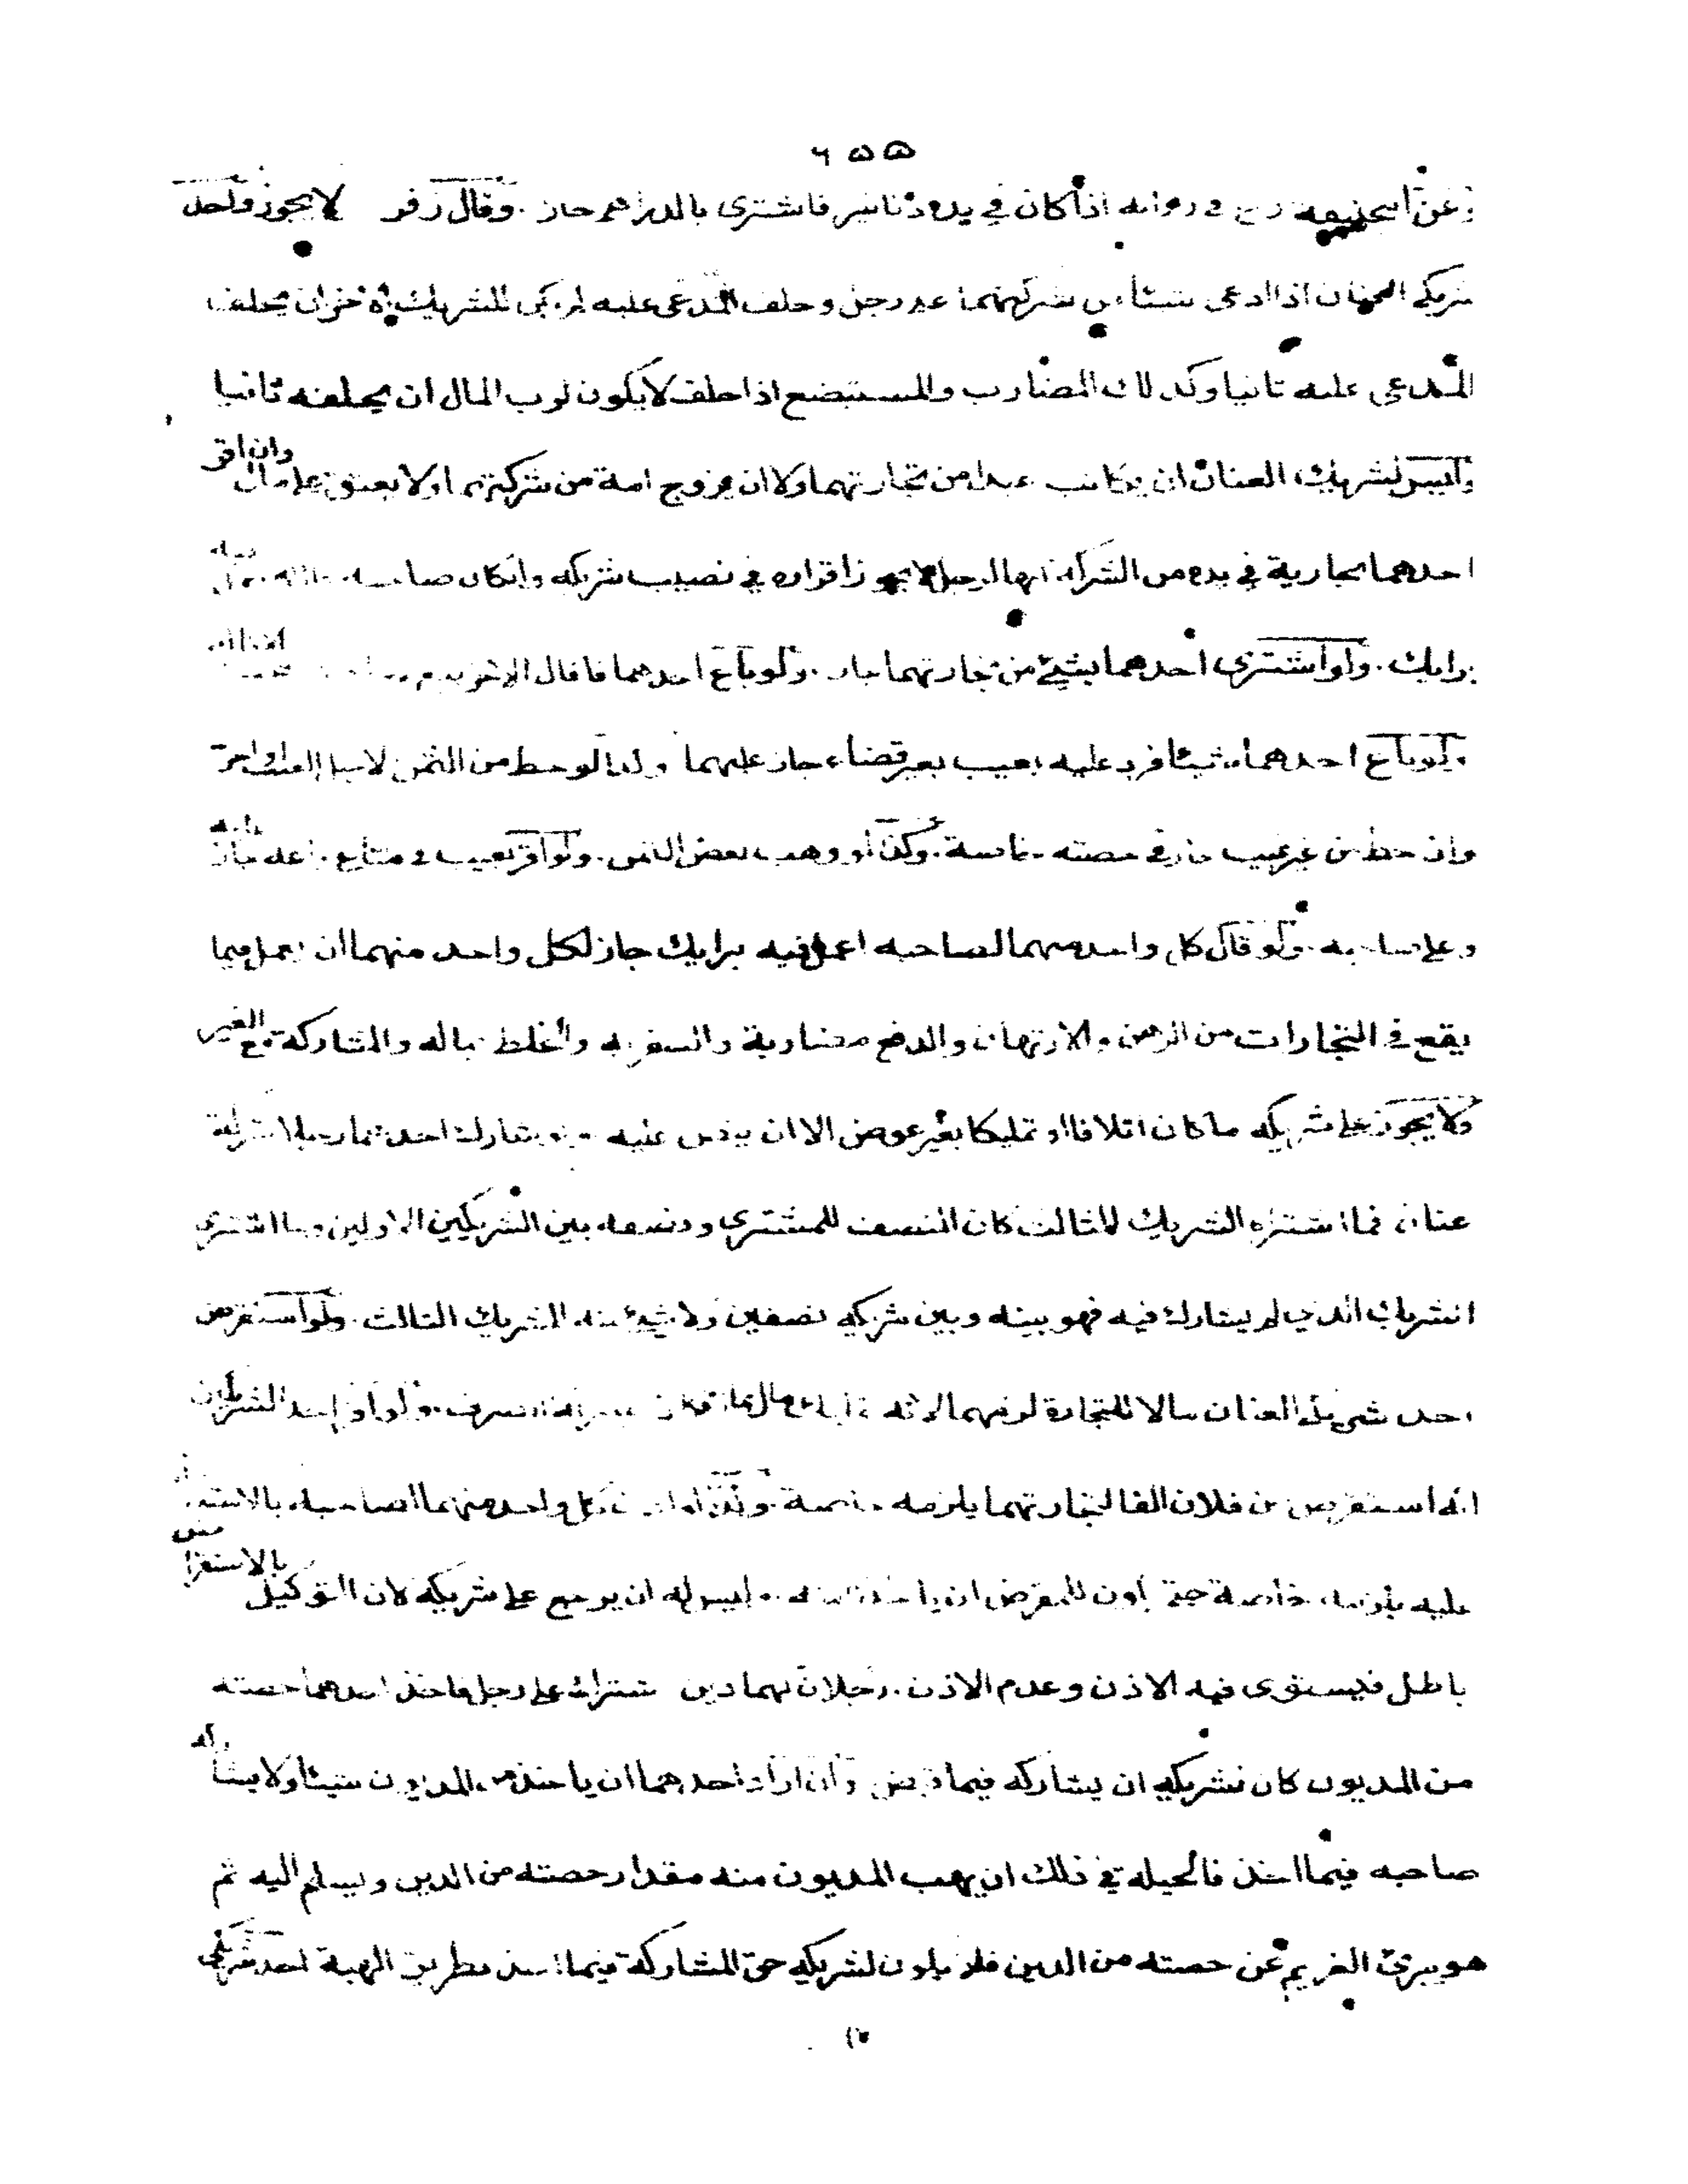 ٦٥٥
وعن ابيحنيفة رح في رواية اذا كان في يده دنانير فاشترى بالدراهم جاز . وقال زفر لا يجوز واحد
شريكى العنان اذا ادعى شيئا من شركتهما على رجل وحلف المدعى عليه لم يكن للشريك الاخر ان يحلف
المدعى عليه ثانيا وكذلك المضارب والمستبضع اذا حلف لا يكون لرب المال ان يحلفه ثانيا
وليس لشريك العنان ان يكاتب عبدا من تجارتهما ولا ان يزوج امة من شركتهما ولا يعتق على مال وان اقر
احدهما بجارية في يده من الشركة انها لرجل لا يجوز اقراره في نصيب شريكه وان كان صاحبه
برايك . ولو اشترى احدهما بشيئ من تجارتهما جاز . ولو باع احدهما فاقال الاخر
ولو باع احدهما شيئا فرد عليه بعيب بغير قضاء جاز عليهما من الثمن لاجل العيب
وان حط من غير عيب جاز في حصته خاصة . وكذا لو وهب بعض الثمن . ولو اقر بعيب في متاع باعه جاز عليه
وعلى صاحبه . ولو قال كل واحد منهما لصاحبه اعمل فيه برايك جاز لكل واحد منهما ان يعمل فيما
يقع في التجارات من الرهن والارتهان والدفع مضاربة والسفر به والخلط بماله والمشاركة مع الغير
ولا يجوز على شريكه ما كان اتلافا او تمليكا بغير عوض الا ان ينص عليه ولو شارك احدهما رجلا شركة
عنان فما اشتراه الشريك الثالث كان النصف للمشترى ونصفه بين الشريكين الاولين وما اشترى
الشريك الذي لم يشارك فيه فهو بينه وبين شريكه نصفين ولا شيئ منه للشريك الثالث . ولو استقرض
احد شريكى العنان مالا للتجارة لزمهما لانه تمليك مال بمال فكان بمنزلة الصرف . ولو اقر احد الشريكين
انه استقرض من فلان الفا لتجارتهما يلزمه خاصة . وكذا لو اذن كل واحد منهما لصاحبه بالاستدانة
عليه يلزمه خاصة حتى يكون للمقرض ان ياخذ منه وليس له ان يرجع على شريكه لان التوكيل بالاستقراض
باطل فيستوى فيه الاذن وعدم الاذن . رجلان لهما دين مشترك على رجل فاخذ احدهما حصته
من المديون كان لشريكه ان يشاركه فيما قبض وان اراد احدهما ان ياخذ من المديون شيئا ولا يشاركه
صاحبه فيما اخذ فالحيلة في ذلك ان يهب المديون منه مقدار حصته من الدين ويسلم اليه ثم
هو يبرئ الغريم عن حصته من الدين فلا يكون لشريكه حق المشاركة فيما اخذ بطريق الهبة احد شريكى